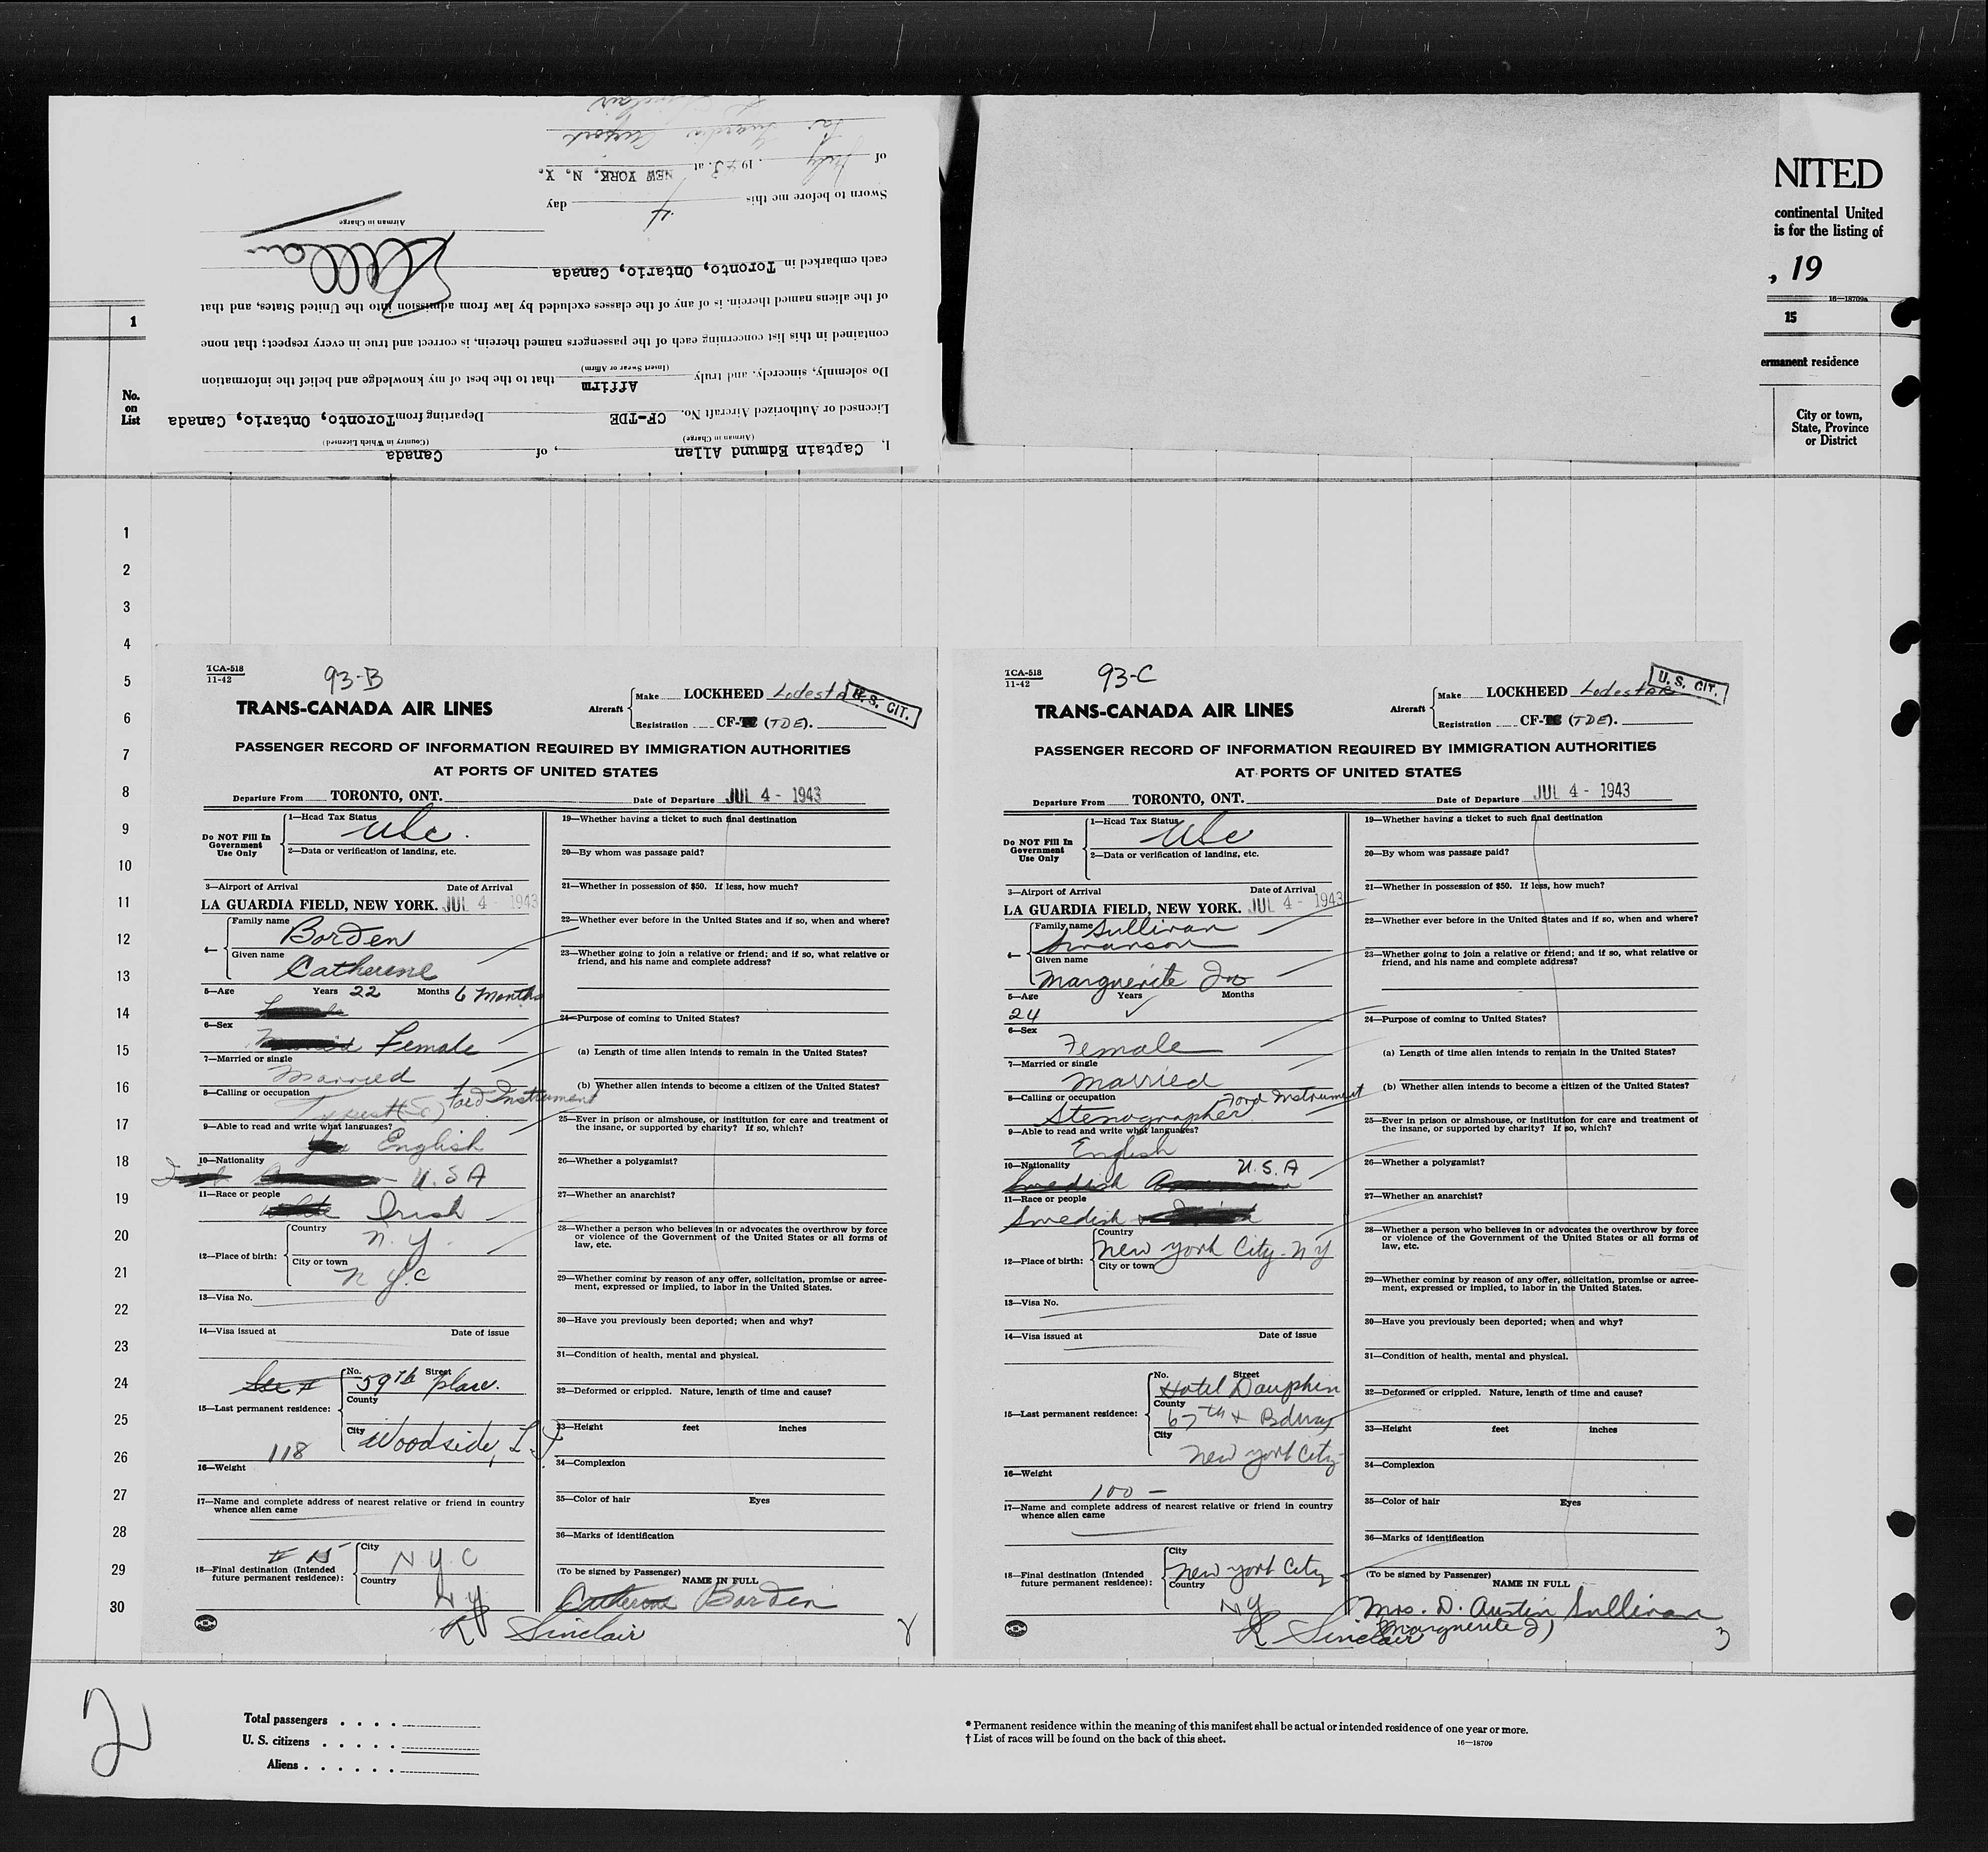 I, Captain Edmund Allan, of Canada
(Airman in Charge) (Country in Which Licensed)
Licensed or Authorized Aircraft No. CF-TDE Departing from Toronto, Ontario, Canada
Do solemnly, sincerely, and truly Affirm that to the best of my knowledge and belief the information
(Insert Swear or Affirm)
contained in this list concerning each of the passengers named therein, is correct and true in every respect; that none
of the aliens named therein, is of any of the classes excluded by law from admission into the United States, and that
each embarked in Toronto, Ontario, Canada
Airman in Charge
Sworn to before me this 4 day
of July, 1943, at NEW YORK, N. Y.
La Guardia Airport
Sinclair
NITED
continental United
is for the listing of
, 19
16—18709a
1
15
ermanent residence
No.
on
List
City or town,
State, Province
or District
1
2
3
4
5
6
7
8
9
10
11
12
13
14
15
16
17
18
19
20
21
22
23
24
25
26
27
28
29
30
TCA-518
11-42
93-B
TRANS-CANADA AIR LINES
Aircraft
Make LOCKHEED Lodestar
Registration CF- (TDE).
U. S. CIT.
PASSENGER RECORD OF INFORMATION REQUIRED BY IMMIGRATION AUTHORITIES
AT PORTS OF UNITED STATES
Departure From TORONTO, ONT. Date of Departure JUL 4 - 1943
Do NOT Fill In
Government
Use Only
1—Head Tax Status
USC.
2—Data or verification of landing, etc.
3—Airport of Arrival Date of Arrival
LA GUARDIA FIELD, NEW YORK. JUL 4 - 1943
4— Family name
Borden
Given name
Catherine
5—Age Years 22 Months 6 Months
6—Sex
Female
7—Married or single
Married
8—Calling or occupation
Typist Ford Instrument
9—Able to read and write what languages?
English
10—Nationality
U.S.A
11—Race or people
Irish
12—Place of birth:
Country
N.Y.
City or town
N.Y.C
13—Visa No.
14—Visa issued at Date of issue
15—Last permanent residence:
No. Street
59th place.
County
City Woodside, L.I.
118
16—Weight
17—Name and complete address of nearest relative or friend in country
whence alien came
18—Final destination (Intended
future permanent residence):
City
N.Y.C
Country
N.Y
19—Whether having a ticket to such final destination
20—By whom was passage paid?
21—Whether in possession of $50. If less, how much?
22—Whether ever before in the United States and if so, when and where?
23—Whether going to join a relative or friend; and if so, what relative or
friend, and his name and complete address?
24—Purpose of coming to United States?
(a) Length of time alien intends to remain in the United States?
(b) Whether alien intends to become a citizen of the United States?
25—Ever in prison or almshouse, or institution for care and treatment of
the insane, or supported by charity? If so, which?
26—Whether a polygamist?
27—Whether an anarchist?
28—Whether a person who believes in or advocates the overthrow by force
or violence of the Government of the United States or all forms of
law, etc.
29—Whether coming by reason of any offer, solicitation, promise or agree-
ment, expressed or implied, to labor in the United States.
30—Have you previously been deported; when and why?
31—Condition of health, mental and physical.
32—Deformed or crippled. Nature, length of time and cause?
33—Height feet inches
34—Complexion
35—Color of hair Eyes
36—Marks of identification
(To be signed by Passenger)
NAME IN FULL
Catherine Borden
R Sinclair
2
TCA-518
11-42
93-C
TRANS-CANADA AIR LINES
Aircraft
Make LOCKHEED Lodestar
Registration CF- (TDE).
U. S. CIT.
PASSENGER RECORD OF INFORMATION REQUIRED BY IMMIGRATION AUTHORITIES
AT PORTS OF UNITED STATES
Departure From TORONTO, ONT. Date of Departure JUL 4 - 1943
Do NOT Fill In
Government
Use Only
1—Head Tax Status
USC
2—Data or verification of landing, etc.
3—Airport of Arrival Date of Arrival
LA GUARDIA FIELD, NEW YORK. JUL 4 - 1943
4— Family name Sullivan
Swanson
Given name
Marguerite
5—Age Years Months
24
6—Sex
Female
7—Married or single
Married
8—Calling or occupation Ford Instrument
Stenographer
9—Able to read and write what languages?
English
10—Nationality U.S.A
Swedish
11—Race or people
Swedish
12—Place of birth:
Country
New York City. N.Y
City or town
13—Visa No.
14—Visa issued at Date of issue
15—Last permanent residence:
No. Street
Hotel Dauphin
County
67th & Bdway
City
New York City
16—Weight
100 —
17—Name and complete address of nearest relative or friend in country
whence alien came
18—Final destination (Intended
future permanent residence):
City
New York City
Country
NY
19—Whether having a ticket to such final destination
20—By whom was passage paid?
21—Whether in possession of $50. If less, how much?
22—Whether ever before in the United States and if so, when and where?
23—Whether going to join a relative or friend; and if so, what relative or
friend, and his name and complete address?
24—Purpose of coming to United States?
(a) Length of time alien intends to remain in the United States?
(b) Whether alien intends to become a citizen of the United States?
25—Ever in prison or almshouse, or institution for care and treatment of
the insane, or supported by charity? If so, which?
26—Whether a polygamist?
27—Whether an anarchist?
28—Whether a person who believes in or advocates the overthrow by force
or violence of the Government of the United States or all forms of
law, etc.
29—Whether coming by reason of any offer, solicitation, promise or agree-
ment, expressed or implied, to labor in the United States.
30—Have you previously been deported; when and why?
31—Condition of health, mental and physical.
32—Deformed or crippled. Nature, length of time and cause?
33—Height feet inches
34—Complexion
35—Color of hair Eyes
36—Marks of identification
(To be signed by Passenger)
NAME IN FULL
Mrs. D. Austin Sullivan
(Marguerite J)
R Sinclair
3
2
Total passengers . . . .
U. S. citizens . . . . .
Aliens . . . . . .
* Permanent residence within the meaning of this manifest shall be actual or intended residence of one year or more.
† List of races will be found on the back of this sheet.
16—18709